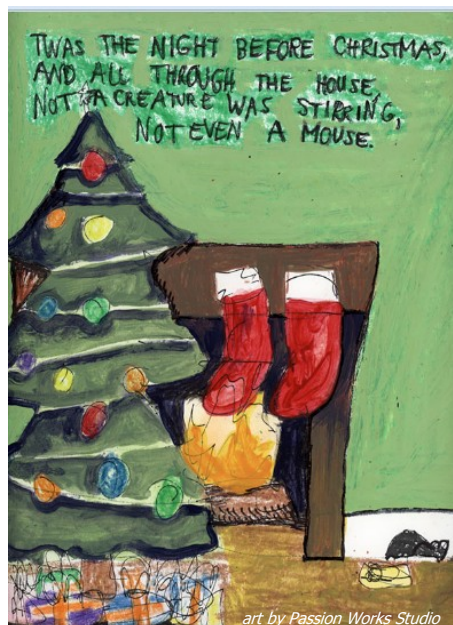 TWAS THE NIGHT BEFORE CHRISTMAS,
AND ALL THROUGH THE HOUSE,
NOT A CREATURE WAS STIRRING,
NOT EVEN A MOUSE.
art by Passion Works Studio